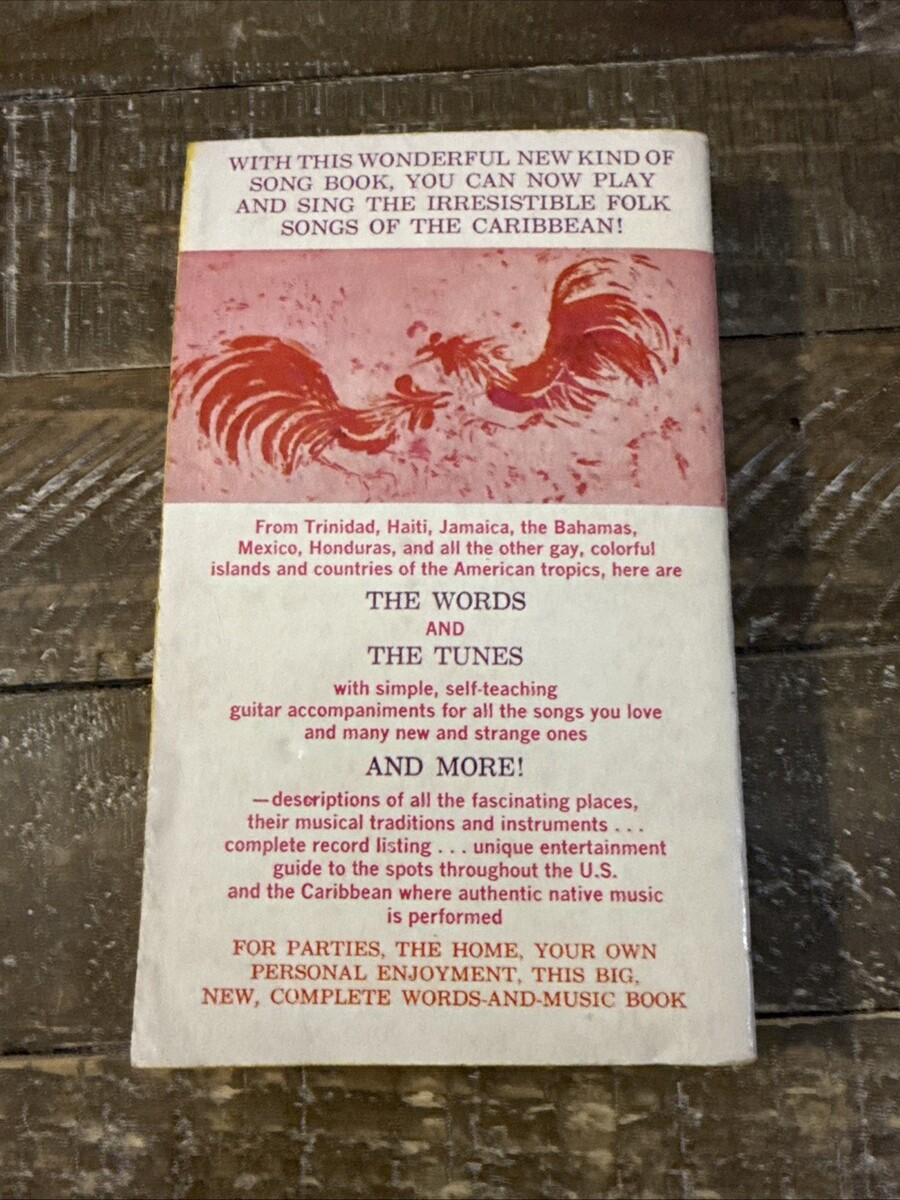 WITH THIS WONDERFUL NEW KIND OF
SONG BOOK, YOU CAN NOW PLAY
AND SING THE IRRESISTIBLE FOLK
SONGS OF THE CARIBBEAN!
From Trinidad, Haiti, Jamaica, the Bahamas,
Mexico, Honduras, and all the other gay, colorful
islands and countries of the American tropics, here are
THE WORDS
AND
THE TUNES
with simple, self-teaching
guitar accompaniments for all the songs you love
and many new and strange ones
AND MORE!
—descriptions of all the fascinating places,
their musical traditions and instruments . . .
complete record listing . . . unique entertainment
guide to the spots throughout the U.S.
and the Caribbean where authentic native music
is performed
FOR PARTIES, THE HOME, YOUR OWN
PERSONAL ENJOYMENT, THIS BIG,
NEW, COMPLETE WORDS-AND-MUSIC BOOK